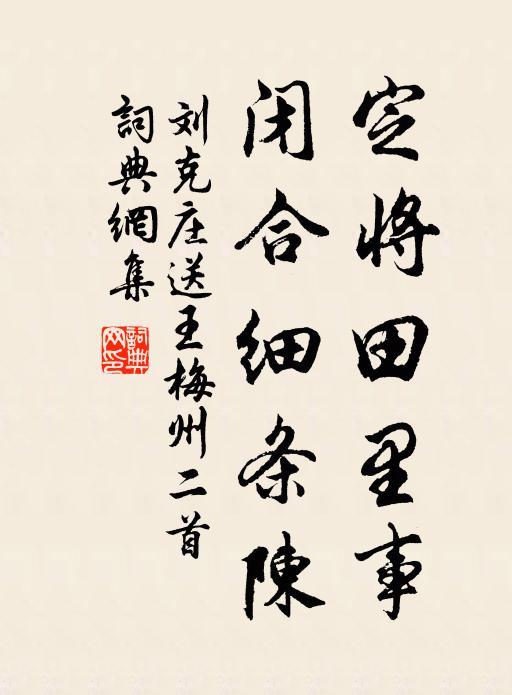 定将田里事
闭合细条陳
刘克庄送王梅州二首
詞典網集
詞典网印